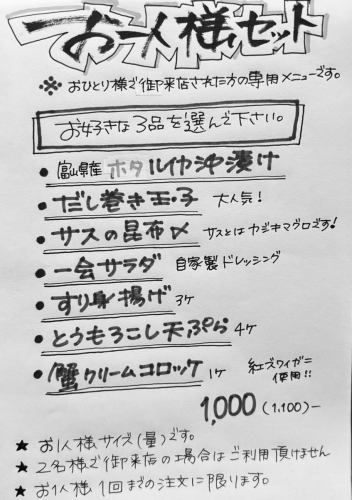 お一人様セット
※おひとり様で御来店された方の専用メニューです。
お好きな3品を選んで下さい。
• 富山県産 ホタルイカ沖漬け
• だし巻き玉子 大人気!
• サスの昆布〆 サスとはカジキマグロです!
• 一会サラダ 自家製ドレッシング
• すり身揚げ 3ヶ
• とうもろこし天ぷら 4ヶ
• 蟹クリームコロッケ 1ヶ 紅ズワイガニ使用!!
1,000 (1,100)-
★ お1人様サイズ(量)です。
★ 2名様で御来店の場合はご利用頂けません
★ お1人様1回までの注文に限ります。